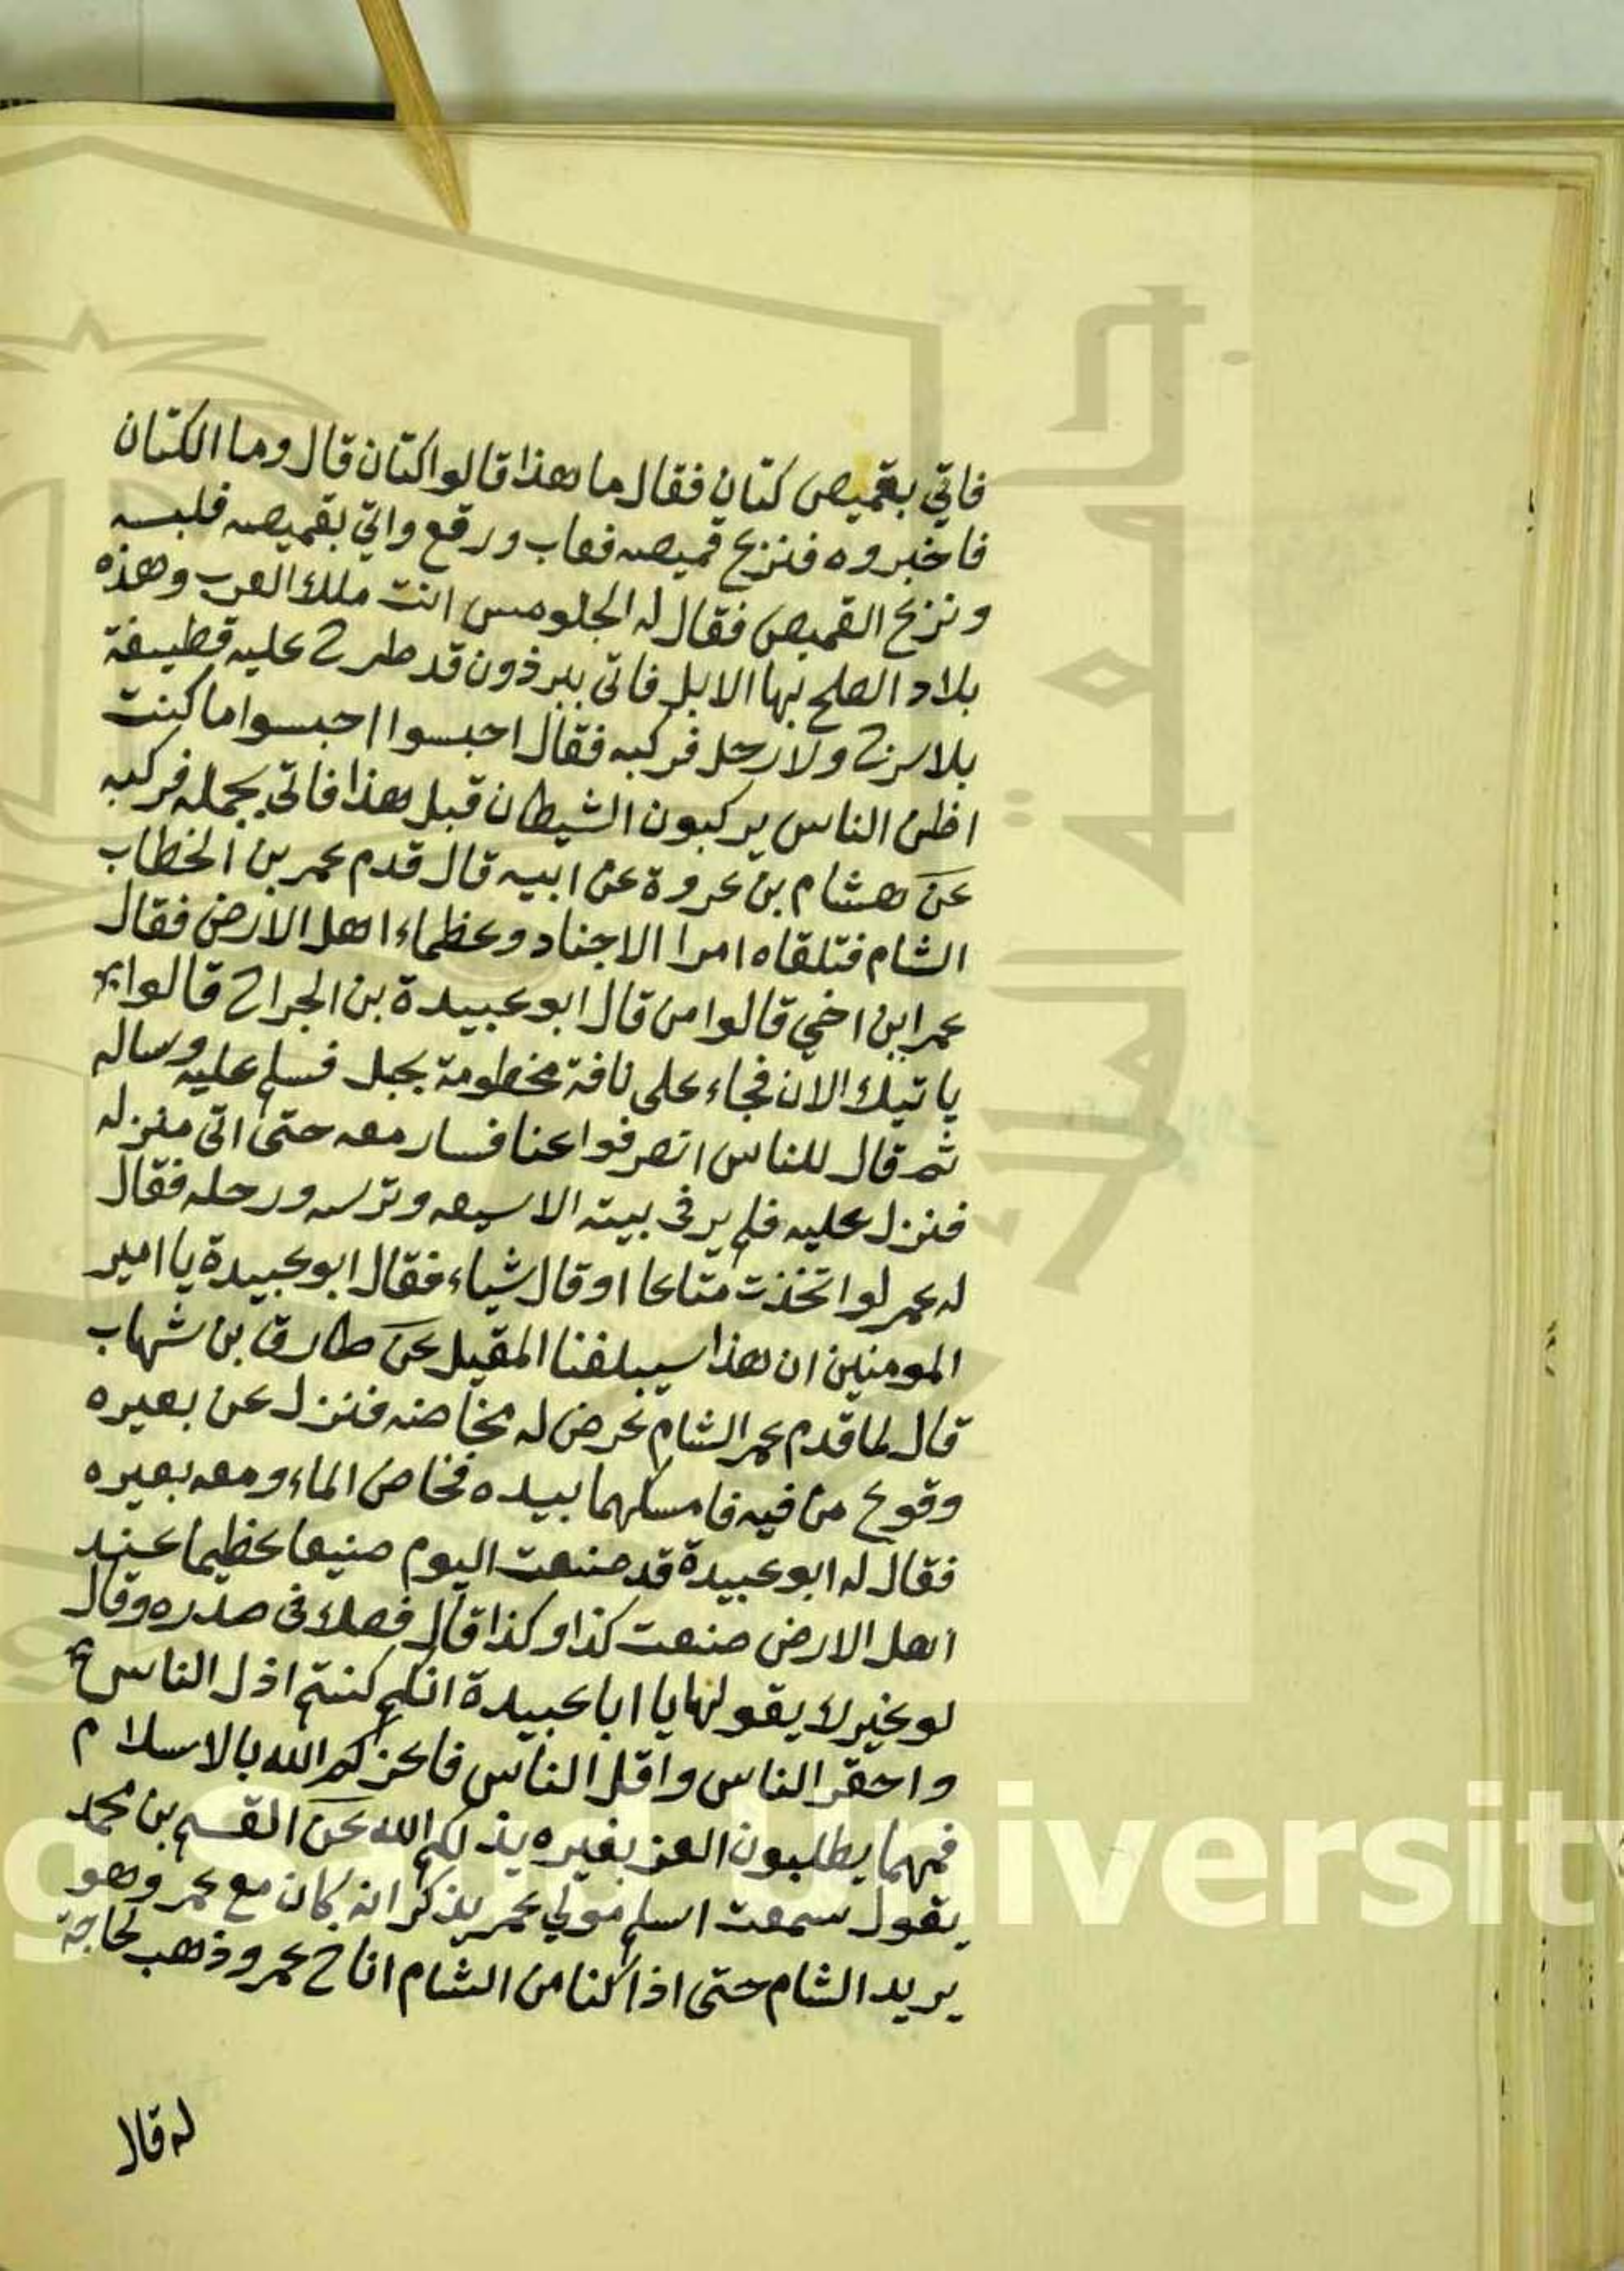 فاتي بقميص كتان فقال ما هذا قالوا كتان قال وما الكتان
فاخبروه فنزع قميصه فعاب ورقع واتي بقميصه فلبسه
ونزع القميص فقال له الجلومس انت ملك العرب وهذه
بلاد الصلح بها الابل فاتى ببرذون قد طرح عليه قطيفة
بلا سرج ولا رحل فركبه فقال احبسوا احبسوا ما كنت
اظن الناس يركبون الشيطان قبل هذا فاتي بجمله فركبه
عن هشام بن عروة عن ابيه قال قدم عمر بن الخطاب
الشام فتلقاه امرا الاجناد وعظماء اهل الارض فقال
عمر اين اخي قالوا من قال ابو عبيدة بن الجراح قالوا
ياتيك الان فجاء على ناقة مخطومة بحبل فسلم عليه وساله
ثم قال للناس انصرفوا عنا فسار معه حتى اتى منزله
فنزل عليه فلم ير في بيته الا سيفه وترسه ورحله فقال
له عمر لو اتخذت متاعا او قال شياء فقال ابو عبيدة يا امير
المومنين ان هذا سيبلغنا المقيل عن طارق بن شهاب
قال لما قدم عمر الشام عرض له مخاضه فنزل عن بعيره
وقوع من فيه فامسكهما بيده فخاض الماء ومعه بعيره
فقال له ابو عبيدة قد صنعت اليوم صنيعا عظيما عند
اهل الارض صنعت كذا وكذا قال فصك في صدره وقال
لو غيرك يقولها يا ابا عبيدة انكم كنتم اذل الناس
واحقر الناس واقل الناس فاعزكم الله بالاسلام
فمهما يطلبون العز بغيره يذلكم الله عن القسم بن محمد
يقول سمعت اسلم مولي عمر يذكر انه كان مع عمر وهو
يريد الشام حتى اذا كنا من الشام اناخ عمر وذهب لحاجة
له قال
King Saud University